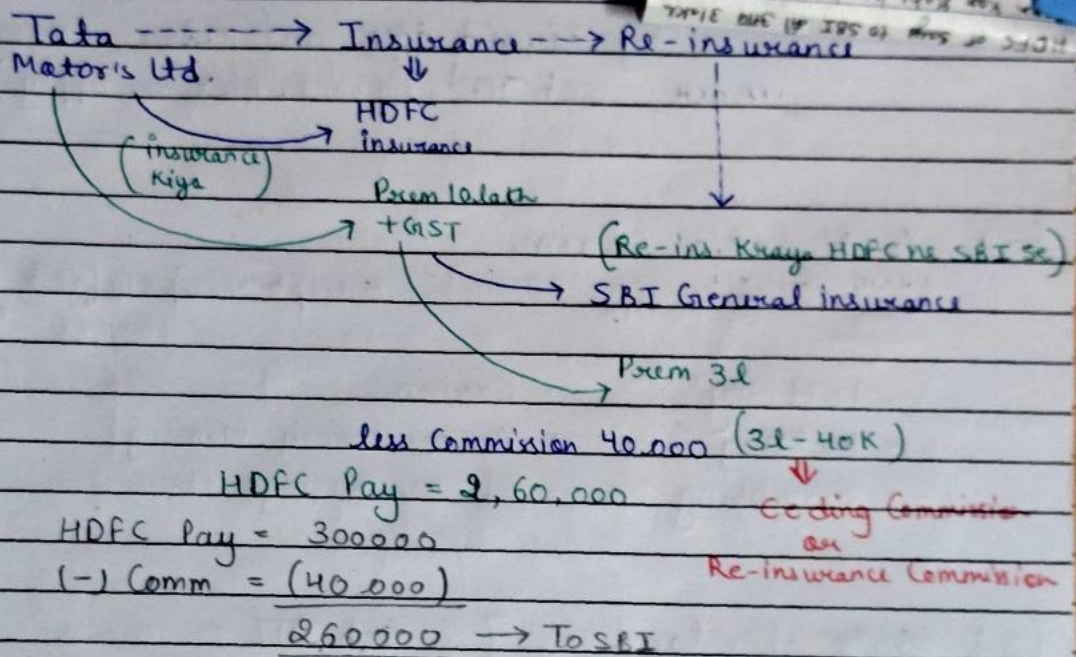 HDFC ne SBI to
Tata -------> Insurance ---> Re-insurance
Mator's Ltd.
⇓
HDFC
insurance
(insurance
Kiya)
Prem 10 lakh
+GST
(Re-ins. Kraya HDFC ne SBI se)
SBI General insurance
Prem 3l
less Commission 40,000 (3l-40K)
HDFC Pay = 2,60,000
Ceding Commission
or
Re-insurance Commission
HDFC Pay = 300000
(-) Comm = (40000)
260000 → To SBI